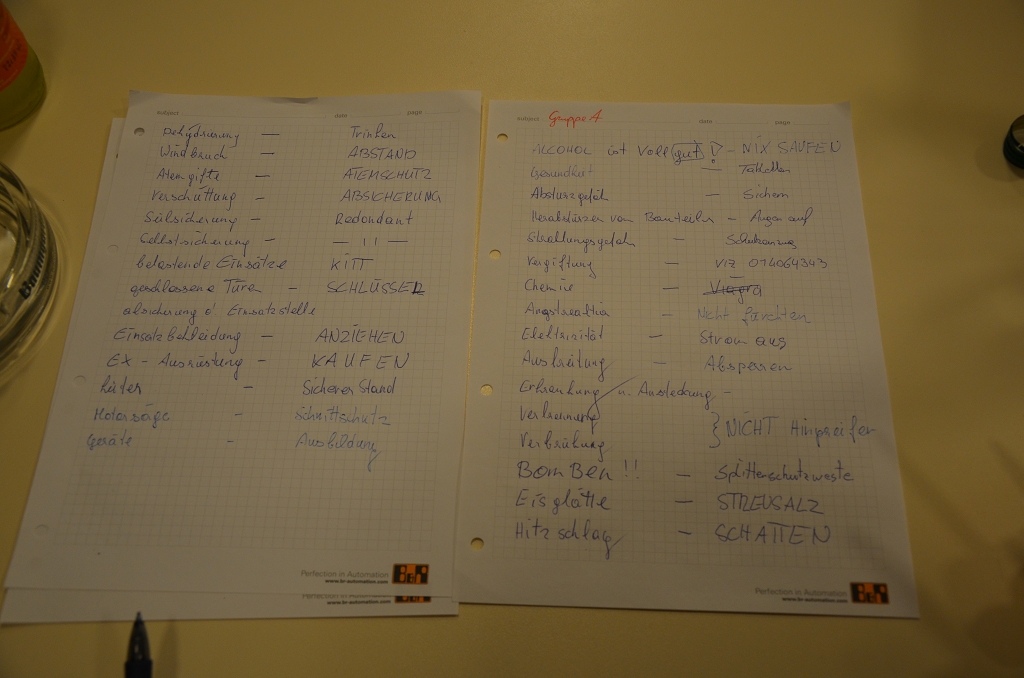 subject date page
Dehydrierung — Trinken
Windbruch — ABSTAND
Atemgifte — ATEMSCHUTZ
Verschüttung — ABSICHERUNG
Seilsicherung — Redondant
Selbstsicherung — — 11 —
belastende Einsätze KITT
geschlossene Türen — SCHLÜSSEL
absicherung d' Einsatzstelle
Einsatzbekleidung — ANZIEHEN
EX - Ausrüstung — KAUFEN
Leiter — Sicherer Stand
Motorsäge — Schnittschutz
Geräte — Ausbildung
Perfection in Automation
www.br-automation.com
B&R
Perfection in Automation
www.br-automation.com
subject Gruppe A date page
ALCOHOL ist Voll gut ! - NIX SAUFEN
Gesundheit — Tabletten
Absturzgefahr — Sichern
Herabstürzen von Bauteilen - Augen auf
Strahlungsgefahr — Schutzanzug
Vergiftung — VIZ 014064343
Chemie — Viagra
Angstreaktion — Nicht fürchten
Elektrizität — Strom aus
Ausbreitung — Absperren
Erkrankung u. Ansteckung -
Verbrennung
Verbrühung } NICHT Hingreifen
BomBen !! — Splitterschutzweste
Eisglätte — STREUSALZ
Hitzschlag — SCHATTEN
Perfection in Automation
www.br-automation.com
B&R